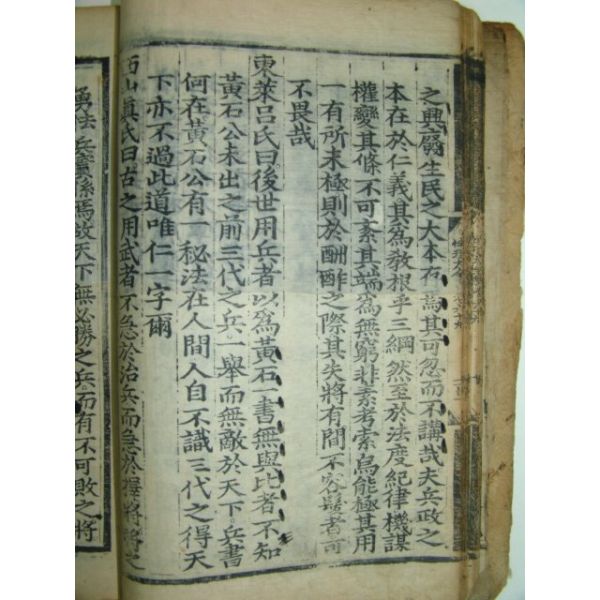 之興廢生民之大本存焉其可忽而不講哉夫兵政之
本在於仁義其為敎根乎三綱然至於法度紀律機謀
權變其條不可紊其端為無窮非素考索烏能極其用
一有所未極則於酬酢之際其失將有間不容髮者可
不畏哉
東萊呂氏曰後世用兵者以為黃石一書無與比者不知
黃石公未出之前三代之兵一舉而無敵於天下兵書
何在黃石公有一秘法在人間人自不識三代之得天
下亦不過此道唯仁一字爾
西山眞氏曰古之用武者不急於治兵而急於擇將將之
勇怯兵實係焉故天下無必勝之兵而有不可敗之將